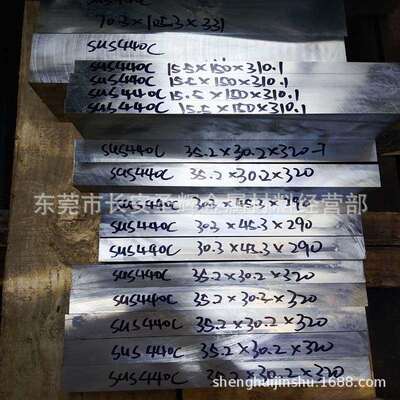 SUS440C
70.3×105.3×331
SUS440C
SUS440C 15.5×150×310.1
SUS440C 15.5×150×310.1
SUS440C 15.5×150×310.1
SUS440C 15.5×150×310.1
SUS440C 35.2×30.2×320
SUS440C 35.2×30.2×320
东莞市长安 经营部
SUS440C 30.3×45.3×290
SUS440C 30.3×45.3×290
SUS440C 30.3×45.3×290
SUS440C 35.2×30.2×320
SUS440C 35.2×30.2×320
SUS440C 35.2×30.2×320
SUS440C 35.2×30.2×320
SUS440C 30.2×30.2×320
shenghuijinshu.1688.com